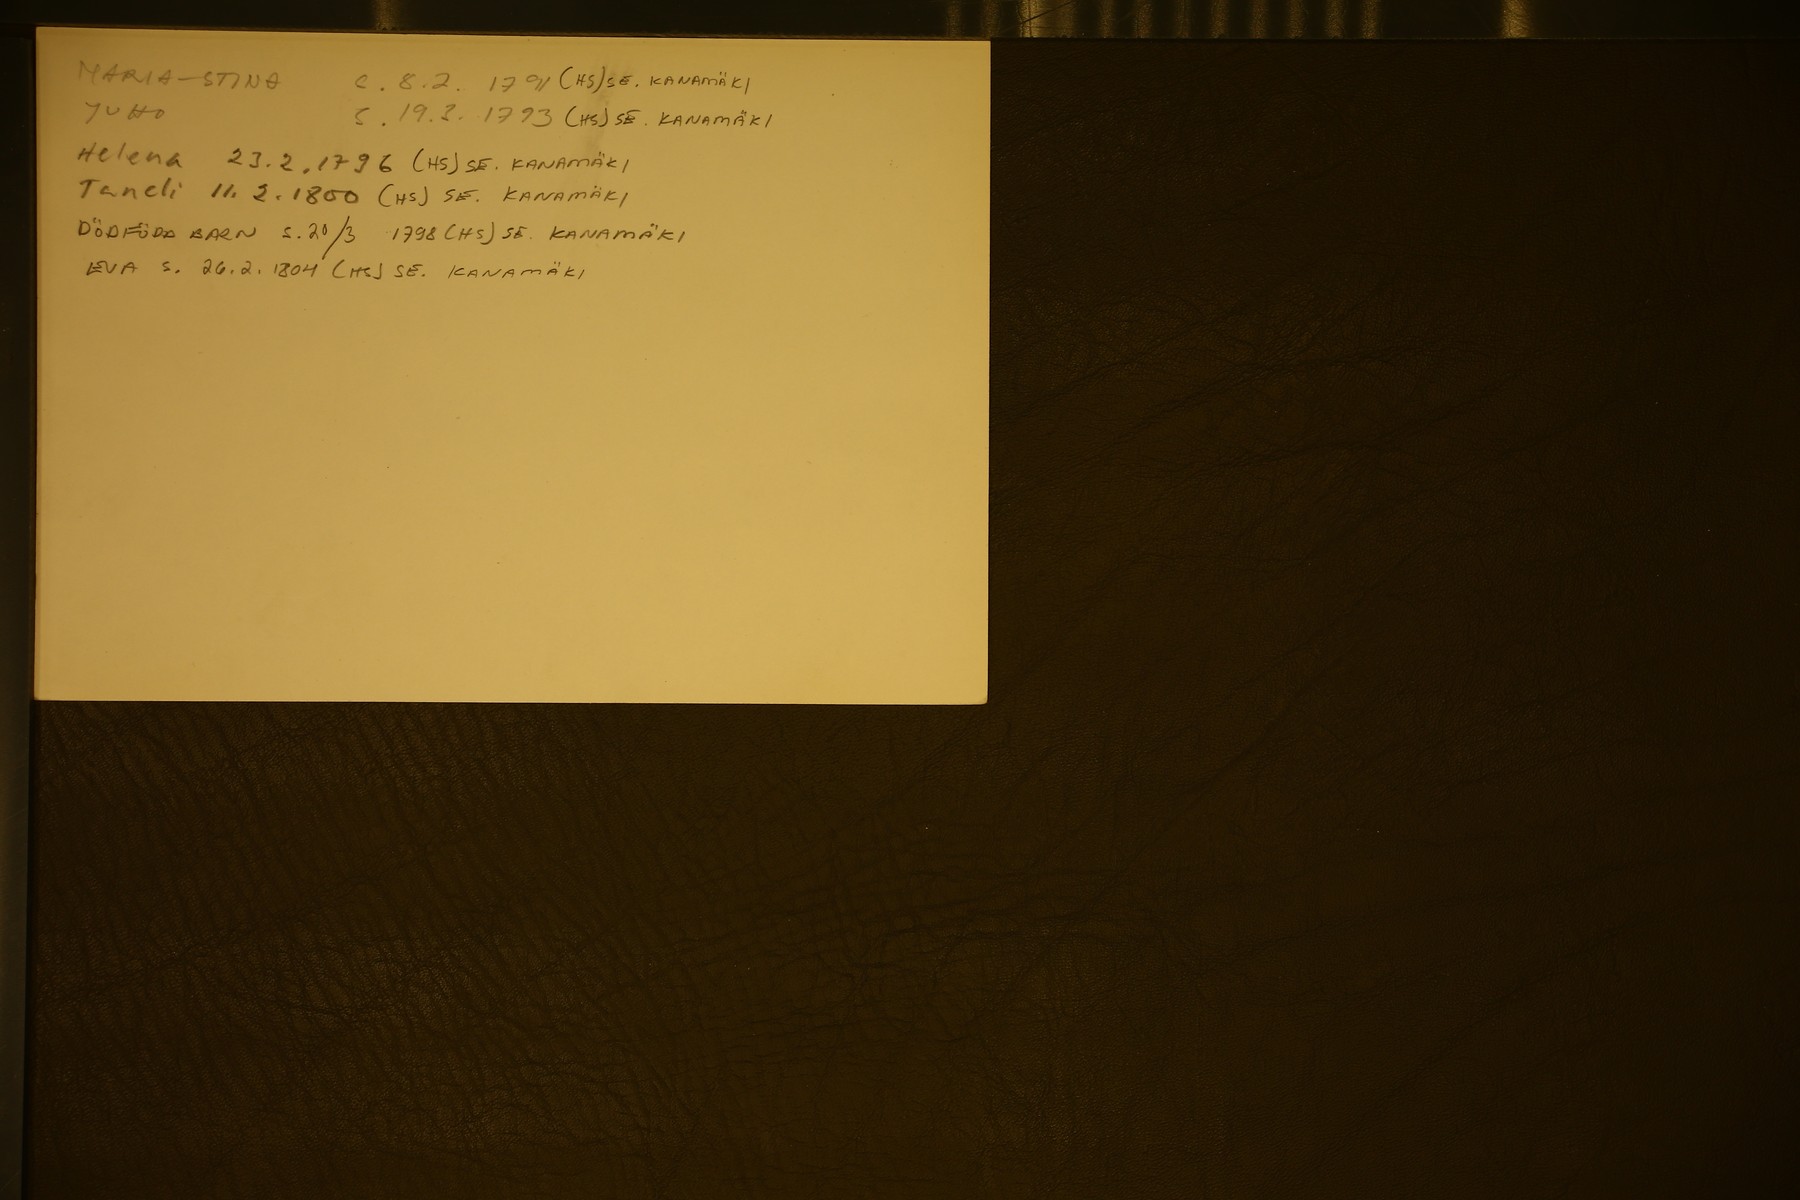 MARIA-STINA S. 8.2. 1791 (HS) SE. KANAMÄKI
JUHO S. 19.3. 1793 (HS) SE. KANAMÄKI
Helena 23.2.1796 (HS) SE. KANAMÄKI
Taneli 11.2.1800 (HS) SE. KANAMÄKI
DÖDFÖDD BARN S. 20/3 1798 (HS) SE. KANAMÄKI
EVA S. 26.2.1804 (HS) SE. KANAMÄKI